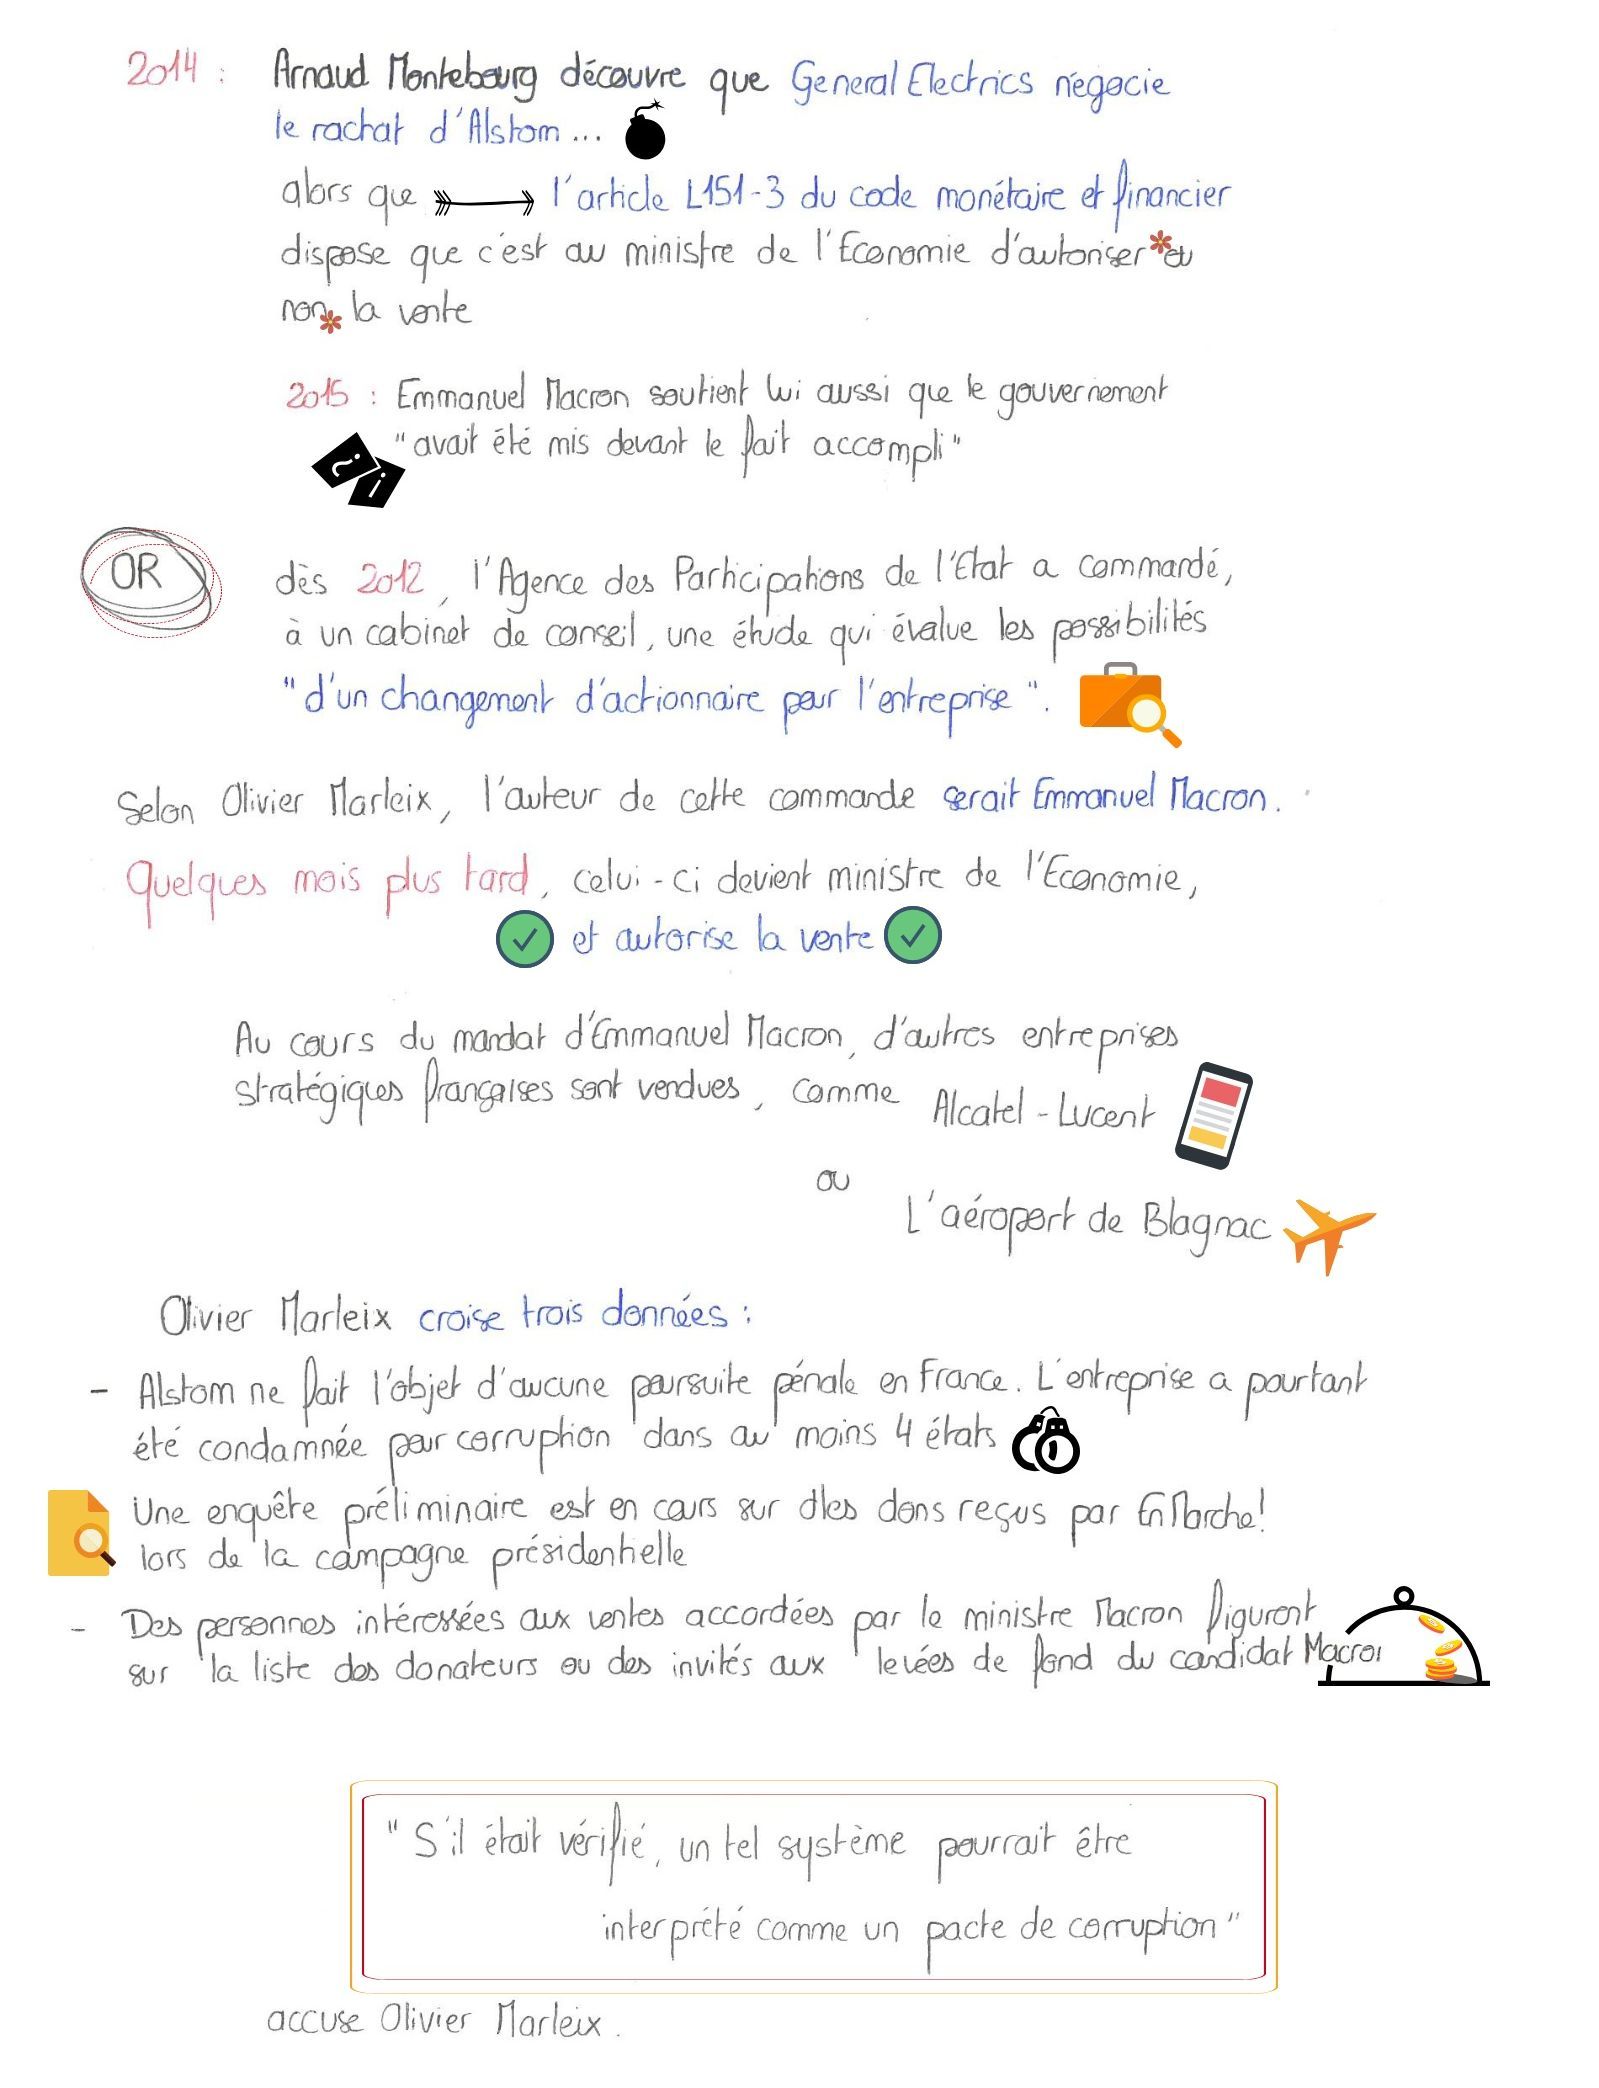 2014 : Arnaud Montebourg découvre que General Electrics négocie
le rachat d'Alstom ...
alors que l'article L151-3 du code monétaire et financier
dispose que c'est au ministre de l'Economie d'autoriser ou
non la vente
2015 : Emmanuel Macron soutient lui aussi que le gouvernement
"avait été mis devant le fait accompli"
¿ i
OR
dès 2012, l'Agence des Participations de l'Etat a commandé,
à un cabinet de conseil, une étude qui évalue les possibilités
"d'un changement d'actionnaire pour l'entreprise".
Selon Olivier Marleix, l'auteur de cette commande serait Emmanuel Macron.
Quelques mois plus tard, celui-ci devient ministre de l'Economie,
et autorise la vente
Au cours du mandat d'Emmanuel Macron, d'autres entreprises
stratégiques françaises sont vendues, comme Alcatel-Lucent
ou
L'aéroport de Blagnac
Olivier Marleix croise trois données :
- Alstom ne fait l'objet d'aucune poursuite pénale en France. L'entreprise a pourtant
été condamnée pour corruption dans au moins 4 états
Une enquête préliminaire est en cours sur dles dons reçus par En Marche!
lors de la campagne présidentielle
- Des personnes intéressées aux ventes accordées par le ministre Macron figurent
sur la liste des donateurs ou des invités aux levées de fond du candidat Macron
"S'il était vérifié, un tel système pourrait être
interprété comme un pacte de corruption"
accuse Olivier Marleix.